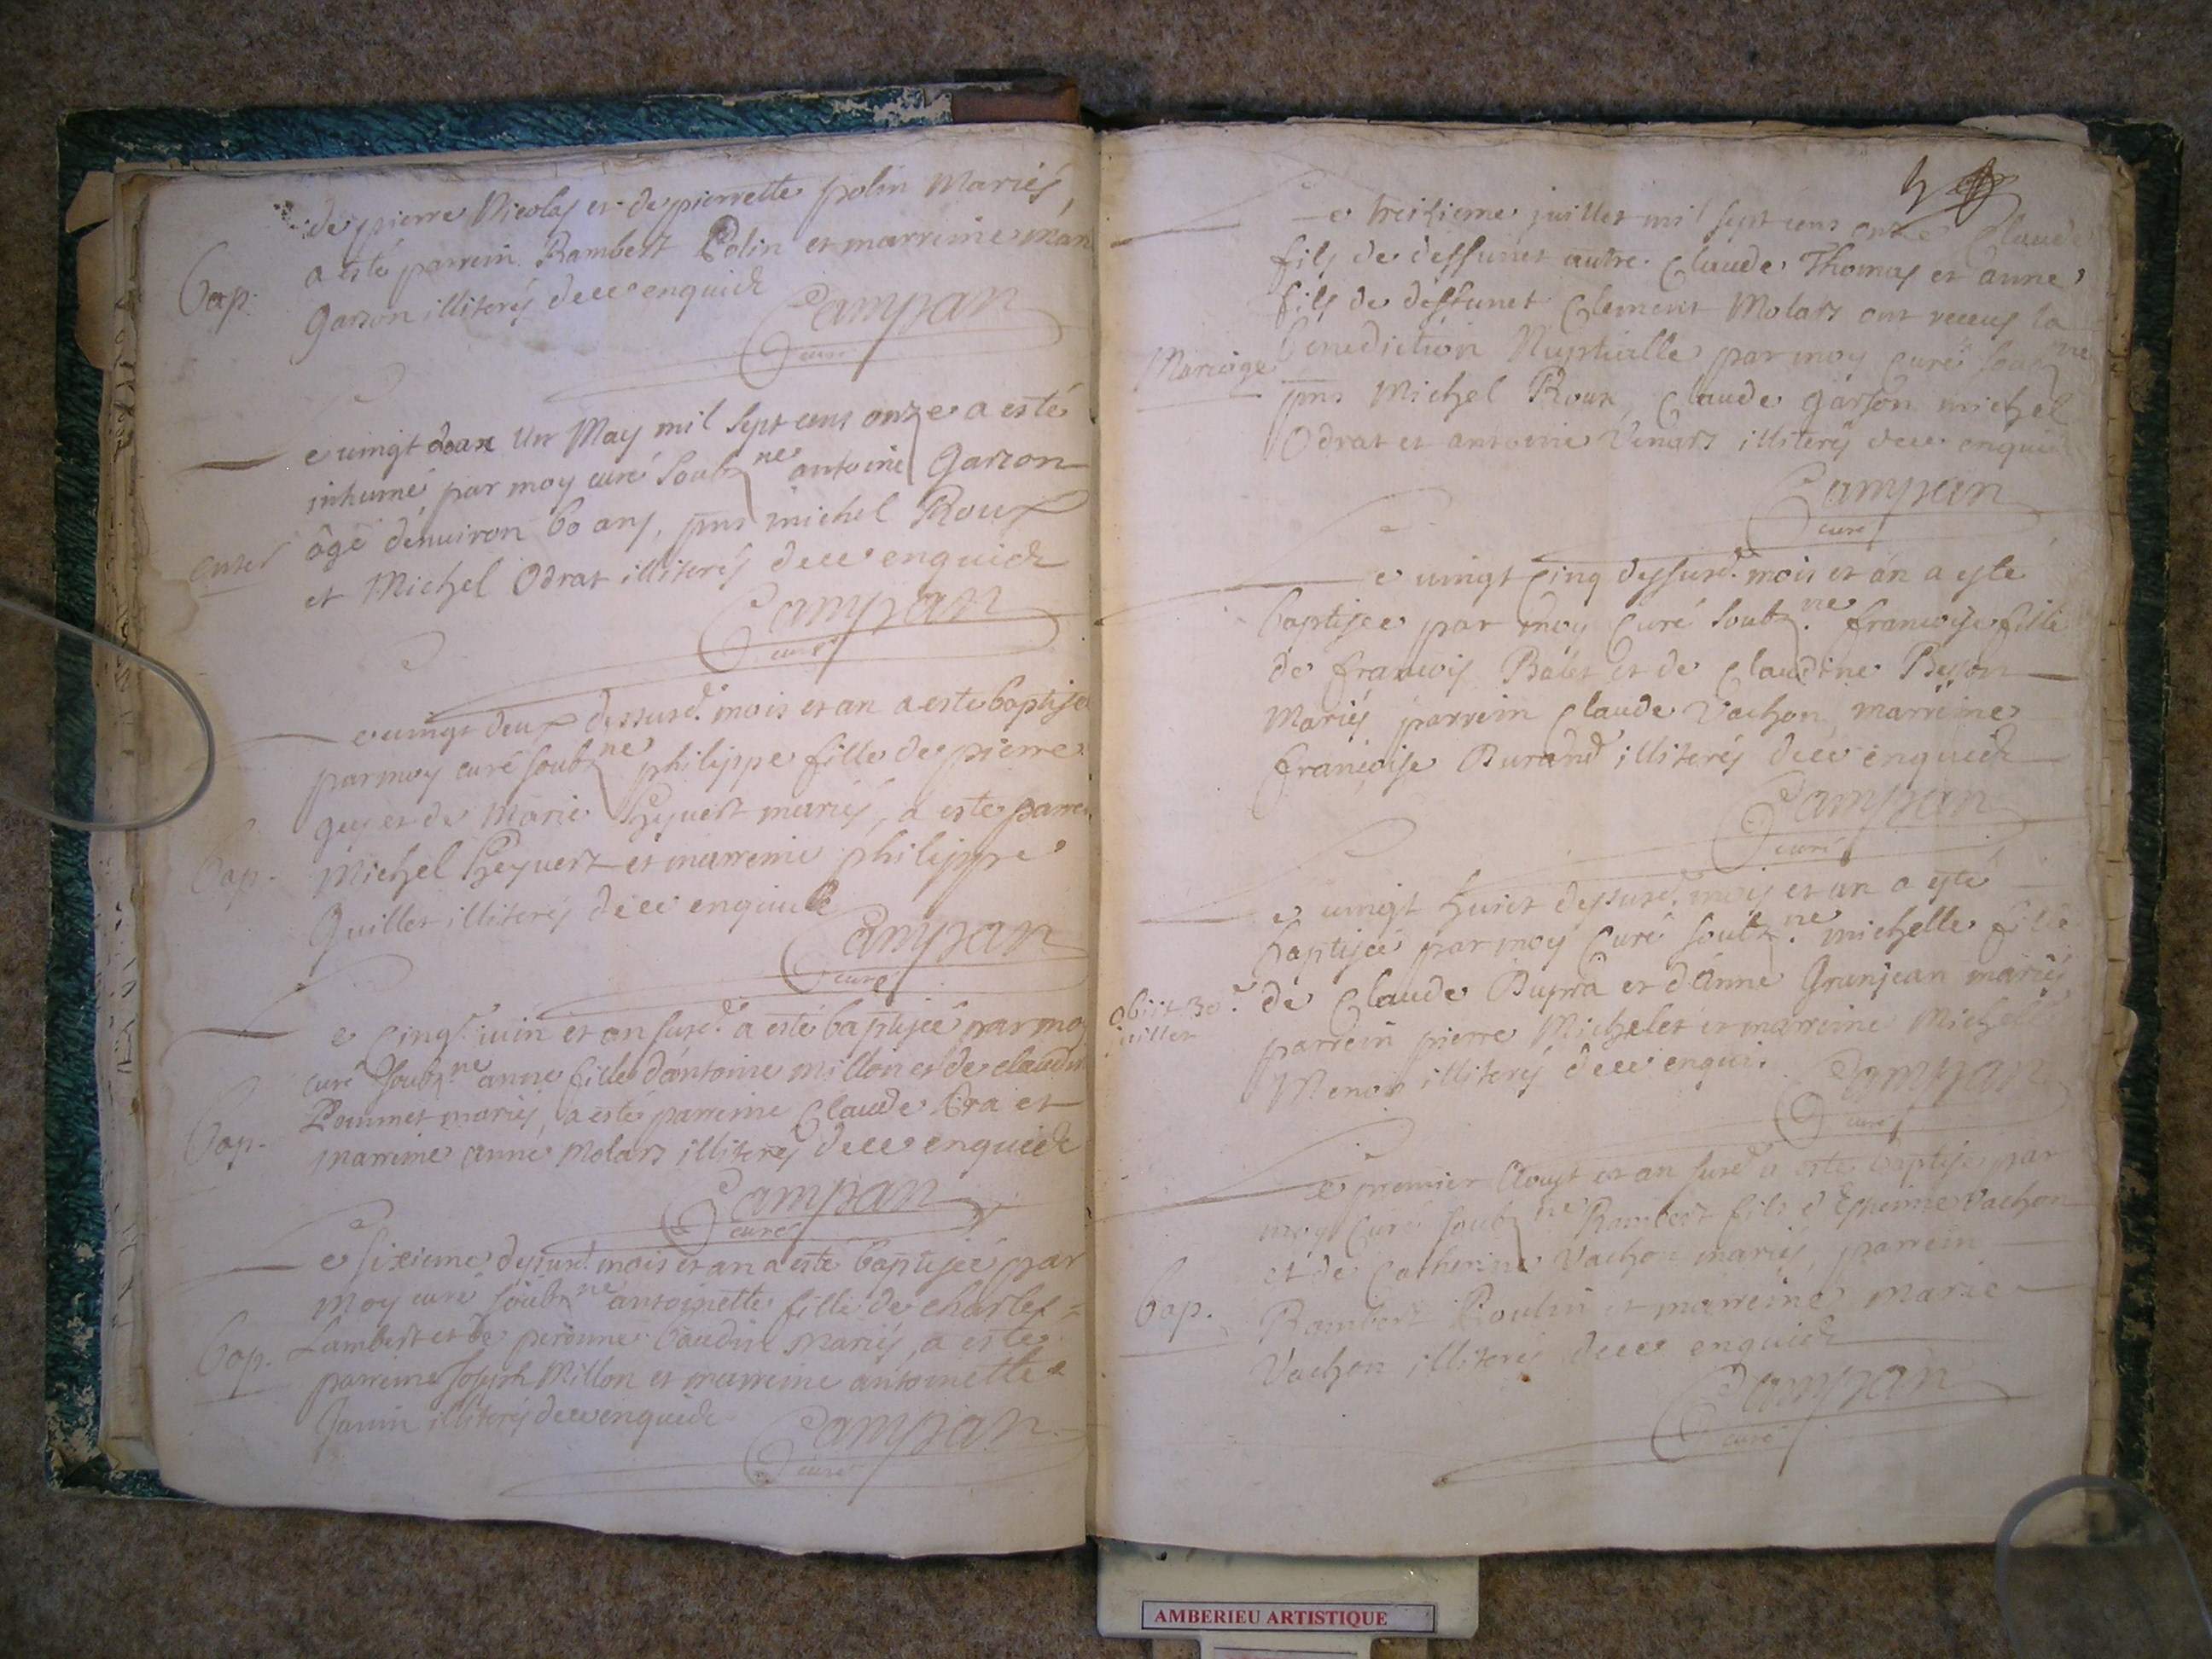 de pierre Nicolas et de pierrette polin Mariés,
Bap. a esté parrein Rambert Polin et marreine
Garson illiterés de ce enquick
Campan
curé
e vingt Un May mil sept cens onze a esté
inhumé par moy curé soubz.ne antoine Garson
âgé denviron 60 ans, pnts michel Roux
et Michel Odrat illiterés de ce enquick
Campan
curé
e vingt deux dessusd. mois et an a esté baptisé
par moy curé soubz.ne philippe fille de pierre
et de Marie mariés, a esté
Bap. Michel et marreine philippe
Guillet illiterés de ce enquick
Campan
curé
e Cinq.e iuin et an susd. a esté baptisée par moy
curé soubz.ne anne fille dántoine millon et de
mariés, a esté parreine Claude et
Bap. marreine anne Molard illiterés de ce enquick
Campan
curé
e sixieme dessusd. mois et an a esté baptisée par
moy curé soubz.ne antoinette fille de charles
Bap. Lambert et de peronne baudin Mariés, a esté
parreine Joseph Millon et marreine antoinette
Janin illiterés de ce enquick
Campan
curé
Le treisieme juillet mil sept cens onze Claude
fils de deffunct autre Claude Thomas et anne
fils de deffunct Clement Molard ont receus la
Mariage benediction Nuptialle par moy Curé soubz.ne
pnts Michel Roux, Claude garson michel
Odrat et antoine Venard illiterés de ce
Campan
curé
e vingt Cinq dessusd. mois et an a esté
baptisée par moy Curé soubz.ne francoise fille
de francois et de Claudine Besson
Mariés parrein Claude Vachon marreine
françoise Durand illiterés de ce enquick
Campan
curé
e vingt huict dessusd. mois et an a esté
baptisée par moy Curé soubz.ne michelle fille
obiit 30.e de Claude Dupra et dAnne Granjean mariés
iuillet parrein pierre Michelet et marreine Michelle
illiterés de ce enqui.
Campan
curé
e premier Aoust et an susd. a esté baptisé par
moy Curé soubz.ne Rambert fils d'Estienne Vachon
et de Catherine Vachon mariés, parrein
Bap. Rambert et marreine Marie
Vachon illiterés de ce enquick
Campan
curé
AMBERIEU ARTISTIQUE